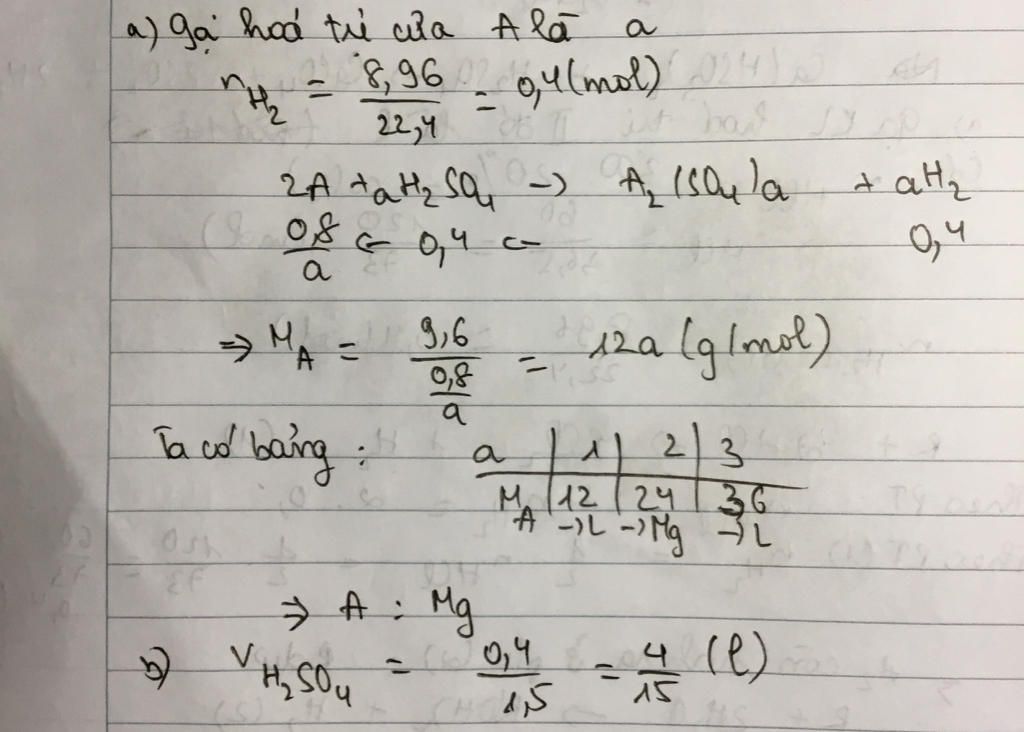 a) Gọi hoá trị của A là a
nH2 = 8,96/22,4 = 0,4 (mol)
2A + aH2SO4 -> A2(SO4)a + aH2
0,8/a <- 0,4 <- 0,4
=> MA = 9,6/(0,8/a) = 12a (g/mol)
Ta có bảng: a | 1 | 2 | 3
MA | 12 | 24 | 36
->L ->Mg ->L
=> A : Mg
b) VH2SO4 = 0,4/1,5 = 4/15 (l)